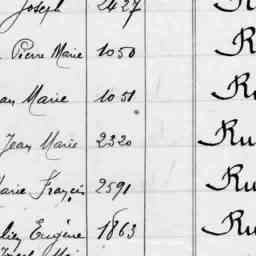 Joseph 2427 R
Pierre Marie 1050 R
an Marie 1051 Ru
Jean Marie 2320 Ru
arie Franç 2591 Ru
Eugène 1863 Ru